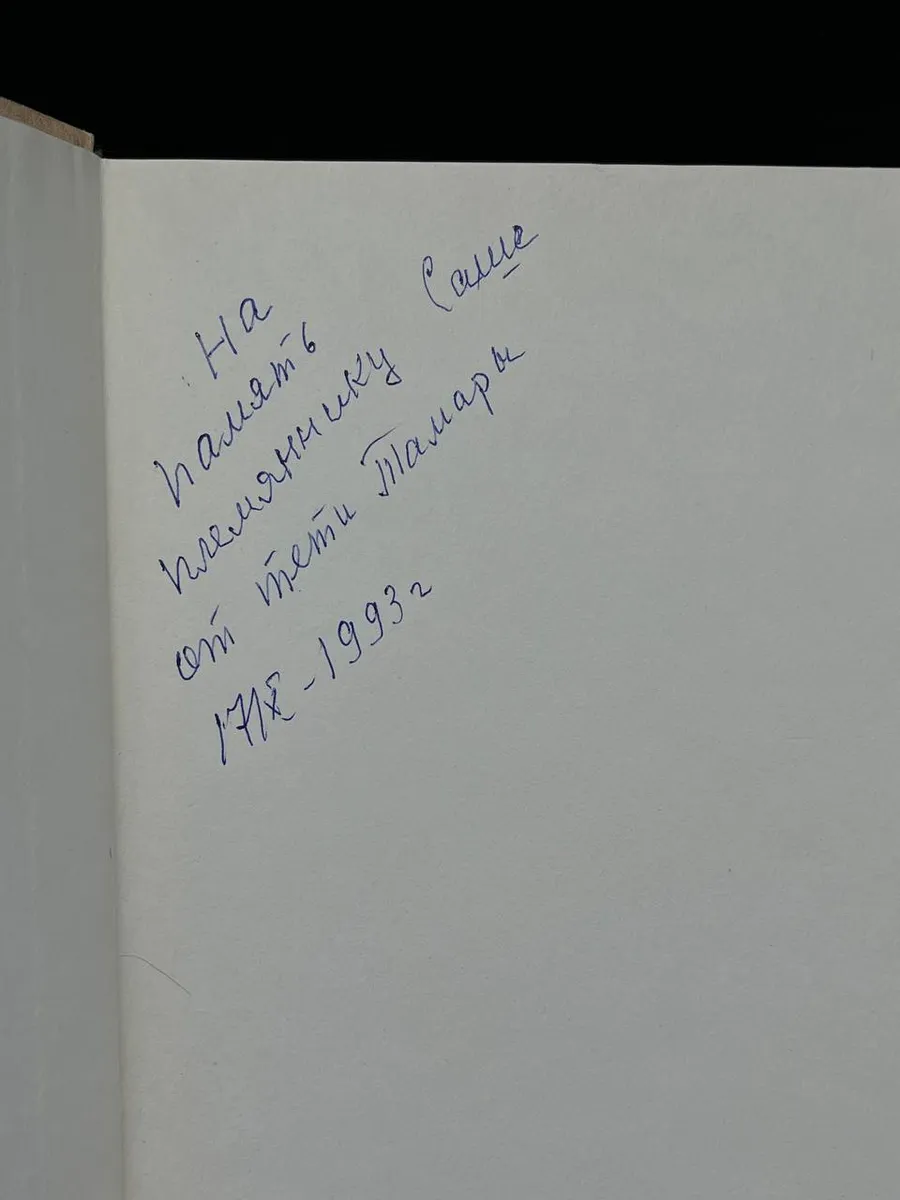 На
память
племяннику Саше
от тети Тамары
17/X - 1993 г